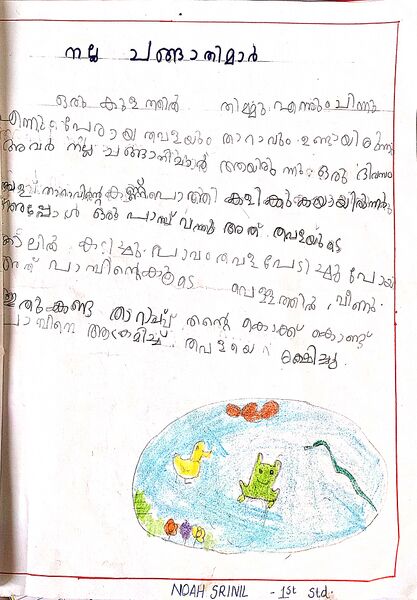 നല്ല ചങ്ങാതിമാർ
ഒരു കുളത്തിൽ തിമ്മു എന്നും ചിന്നു
എന്നും പേരായ തവളയും താറാവും ഉണ്ടായിരുന്നു
അവർ നല്ല ചങ്ങാതിമാർ ആയിരുന്നു. ഒരു ദിവസം
കണ്ണ് പൊത്തി കളിക്കുകയായിരുന്നു
അപ്പോൾ ഒരു പാമ്പ് വന്നു അത് തവളയുടെ
കാലിൽ കടിച്ചു. പാവം തവള പേടിച്ചു പോയി
അത് പാമ്പിന്റെകൂടെ വെള്ളത്തിൽ വീണു.
ഇതുകണ്ട താറാവ് തന്റെ കൊക്ക് കൊണ്ട്
പാമ്പിനെ ആക്രമിച്ച് തവളയെ രക്ഷിച്ചു.
NOAH SRINIL - 1st std.